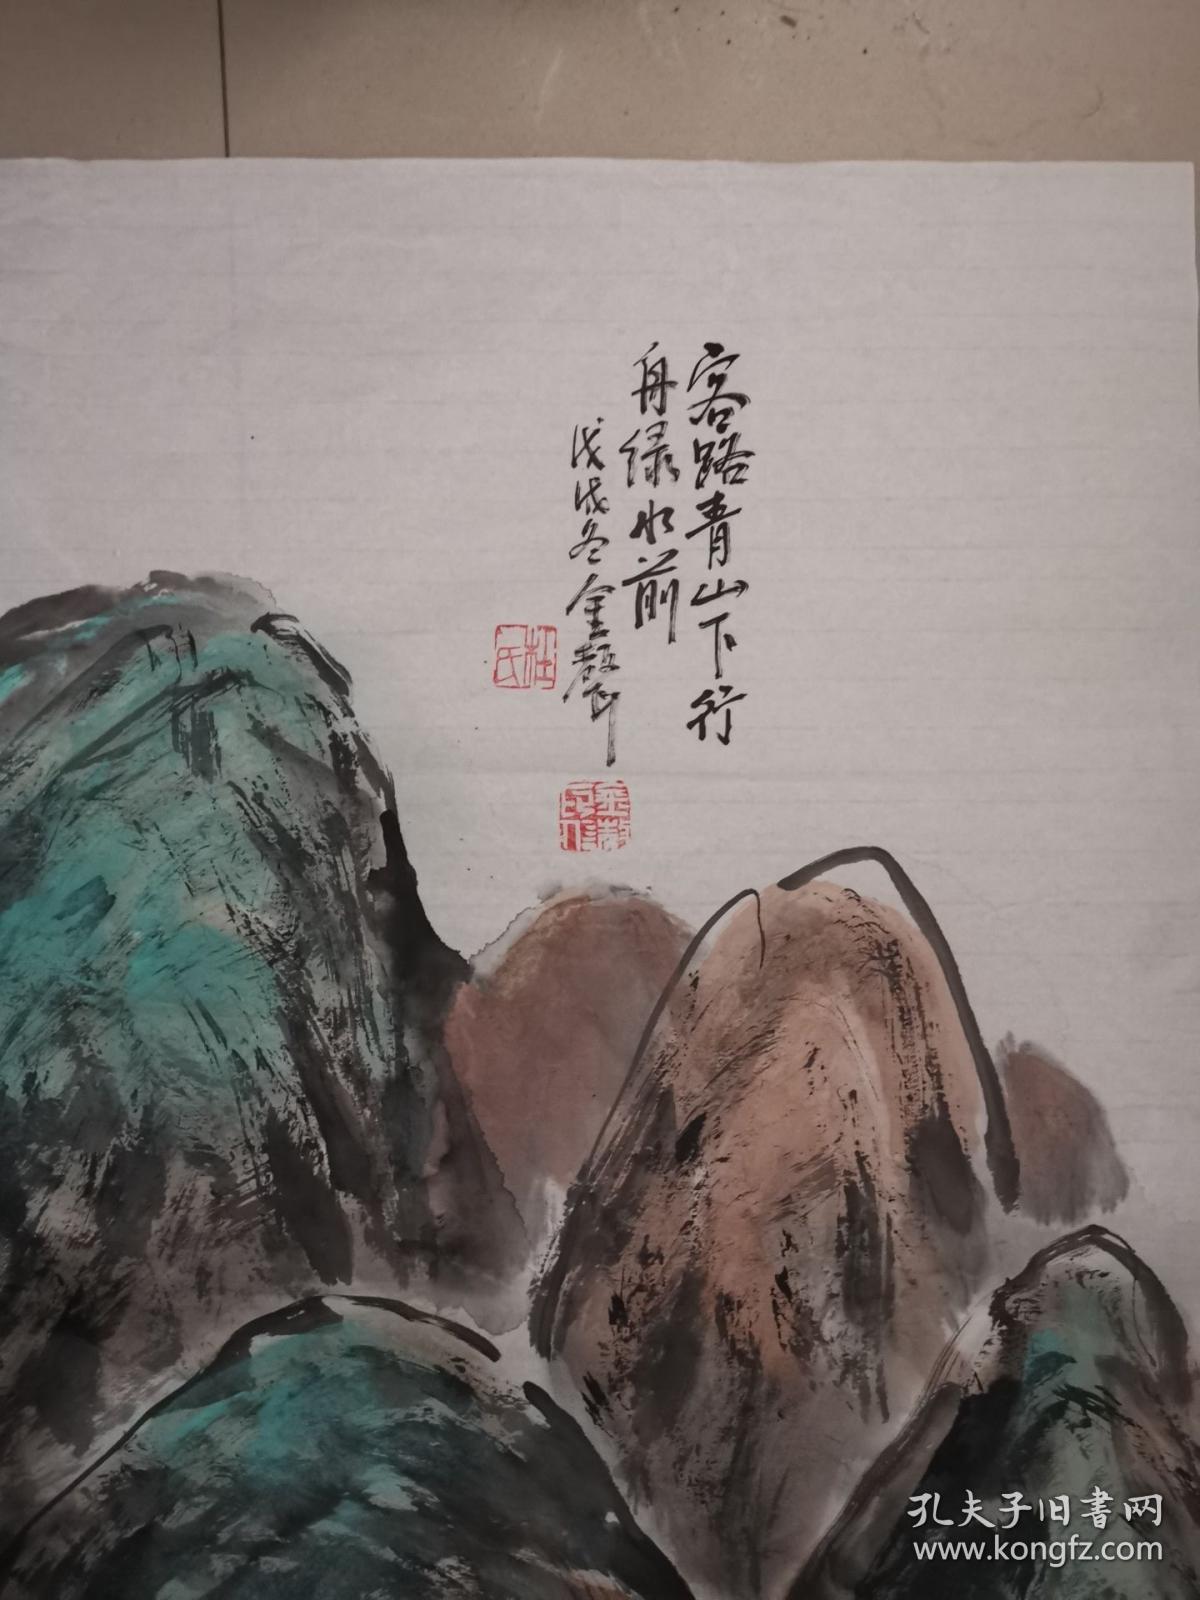 客路青山下行
舟绿水前
戊戌冬金声
杜氏
孔夫子旧書网
www.kongfz.com